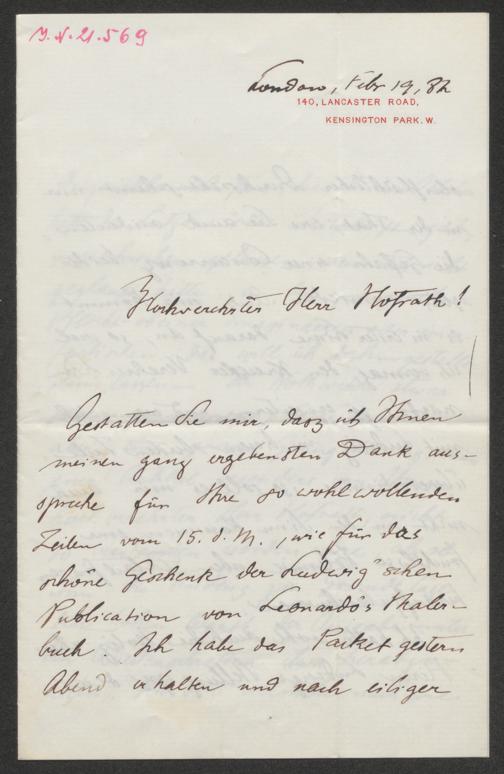 I.N. 21.569
London, Febr 19, 82
140, LANCASTER ROAD,
KENSINGTON PARK. W.
Hochverehrter Herr Hofrath!
Gestatten Sie mir, dasz ich Ihnen
meinen ganz ergebensten Dank aus-
spreche für Ihre so wohlwollenden
Zeilen vom 15. d. M., wie für das
schöne Geschenk der Ludwig'schen
Publication von Leonardo's Maler-
buch. Ich habe das Packet gestern
Abend erhalten und nach eiliger